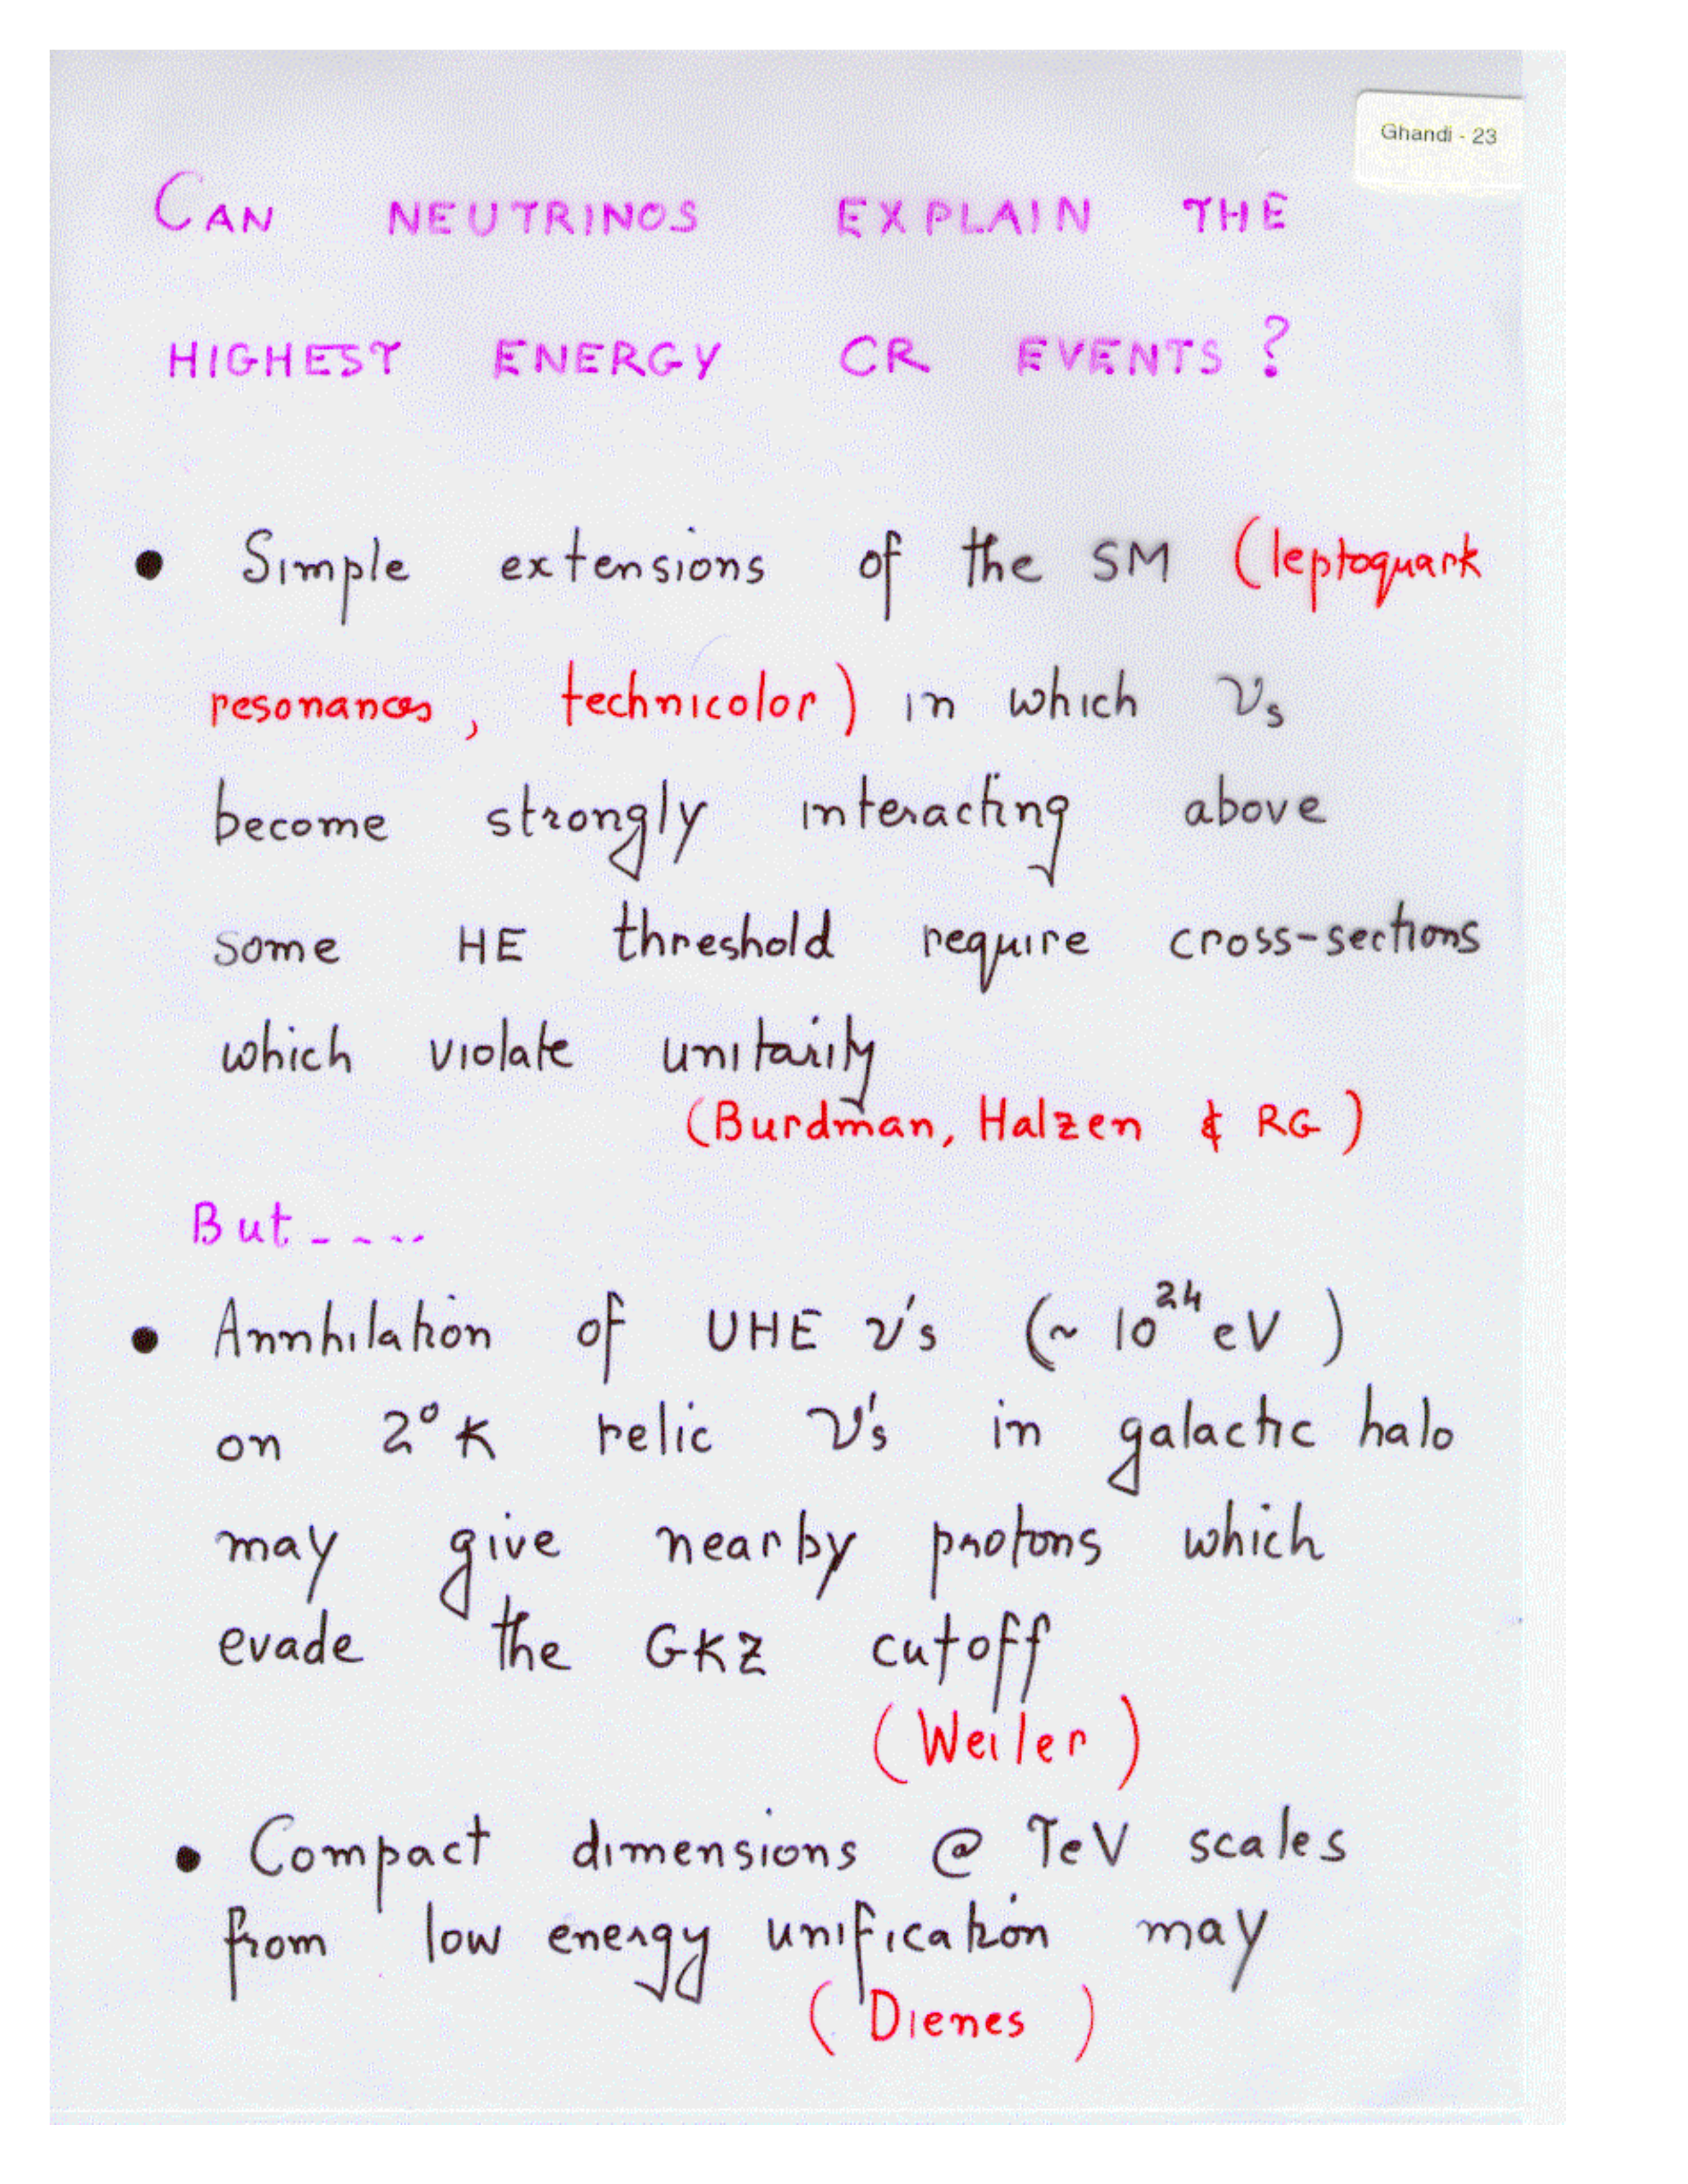 Ghandi - 23
CAN NEUTRINOS EXPLAIN THE
HIGHEST ENERGY CR EVENTS?
• Simple extensions of the SM (leptoquark
resonances, technicolor) in which νs
become strongly interacting above
some HE threshold require cross-sections
which violate unitarity
(Burdman, Halzen & RG)
But ----
• Annhilation of UHE ν's (~ 10²⁴ eV)
on 2°K relic ν's in galactic halo
may give nearby protons which
evade the GKZ cutoff
(Weiler)
• Compact dimensions @ TeV scales
from low energy unification may
(Dienes)